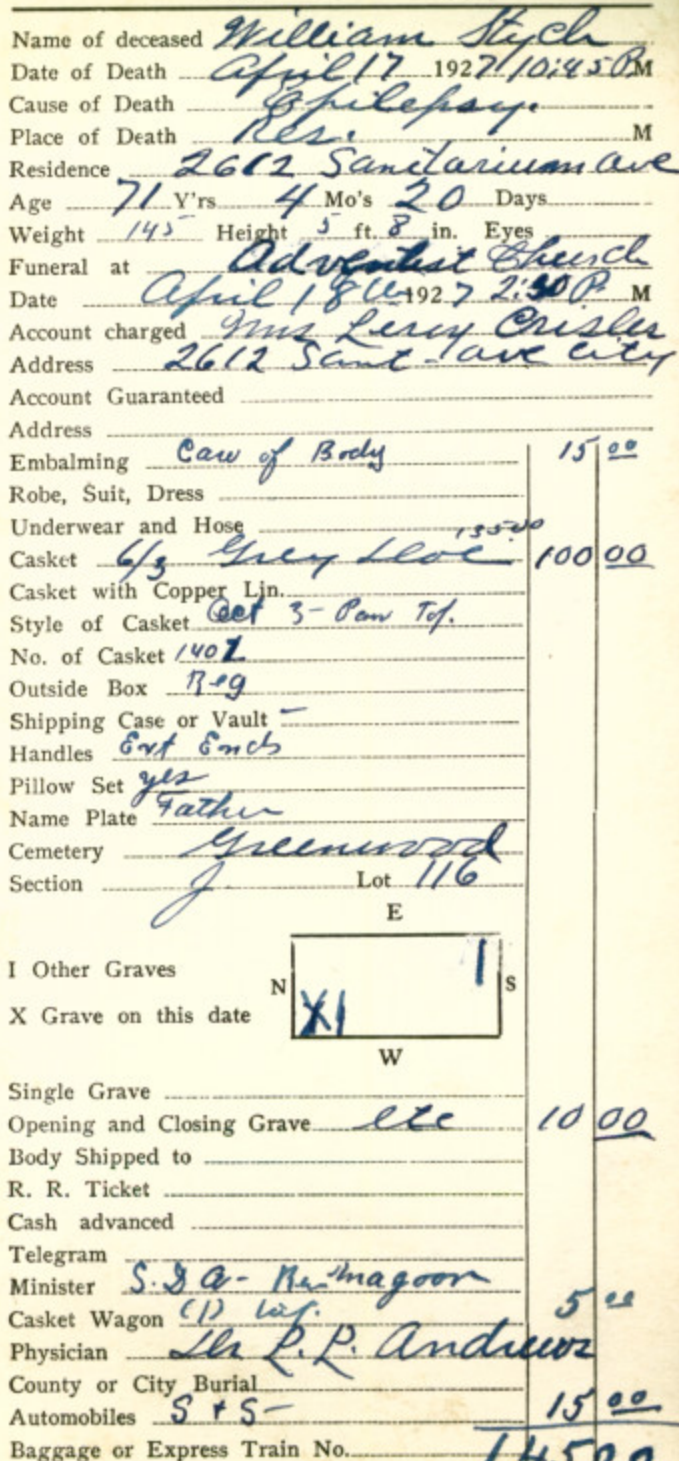 Name of deceased William Stych
Date of Death April 17 1927 10:45 P.M
Cause of Death Epilepsy.
Place of Death Res. M
Residence 2612 Sanitarium ave
Age 71 Y'rs 4 Mo's 20 Days
Weight 145 Height 5 ft. 8 in. Eyes
Funeral at Adventist Church
Date April 18th 1927 2:30 P. M
Account charged Mrs Leroy Crisler
Address 2612 Sanit - ave City
Account Guaranteed
Address
Embalming Care of Body 15 00
Robe, Suit, Dress
Underwear and Hose 135.00
Casket 6/3 Grey 100 00
Casket with Copper Lin.
Style of Casket Oct 3-
No. of Casket 1402
Outside Box Reg
Shipping Case or Vault –
Handles Ext Ends
Pillow Set yes
Name Plate Father
Cemetery Greenwood
Section J Lot 116
E
I Other Graves
N I S
X Grave on this date
X I
W
Single Grave
Opening and Closing Grave etc 10 00
Body Shipped to
R. R. Ticket
Cash advanced
Telegram
Minister S.D.A- Magoon
Casket Wagon 5 00
Physician Dr P.P. Andrews
County or City Burial
Automobiles S + S - 15 00
Baggage or Express Train No. 145 00